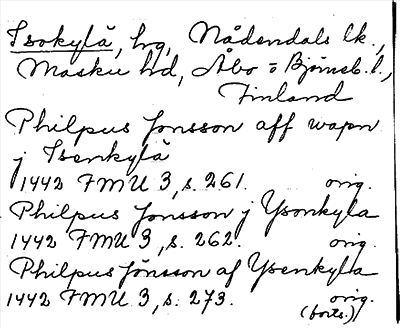 Isokylä, hg, Nådendals lk.,
Masku hd, Åbo o Björneb. l.,
Finland
Philpus Jonsson aff wapn
j Isenkylä
1442 FMU 3, s. 261. orig.
Philpus Jonsson j Ysonkyla
1442 FMU 3, s. 262. orig.
Philpus Jönsson af Ysenkylla
1442 FMU 3, s. 273. orig.
(forts.)